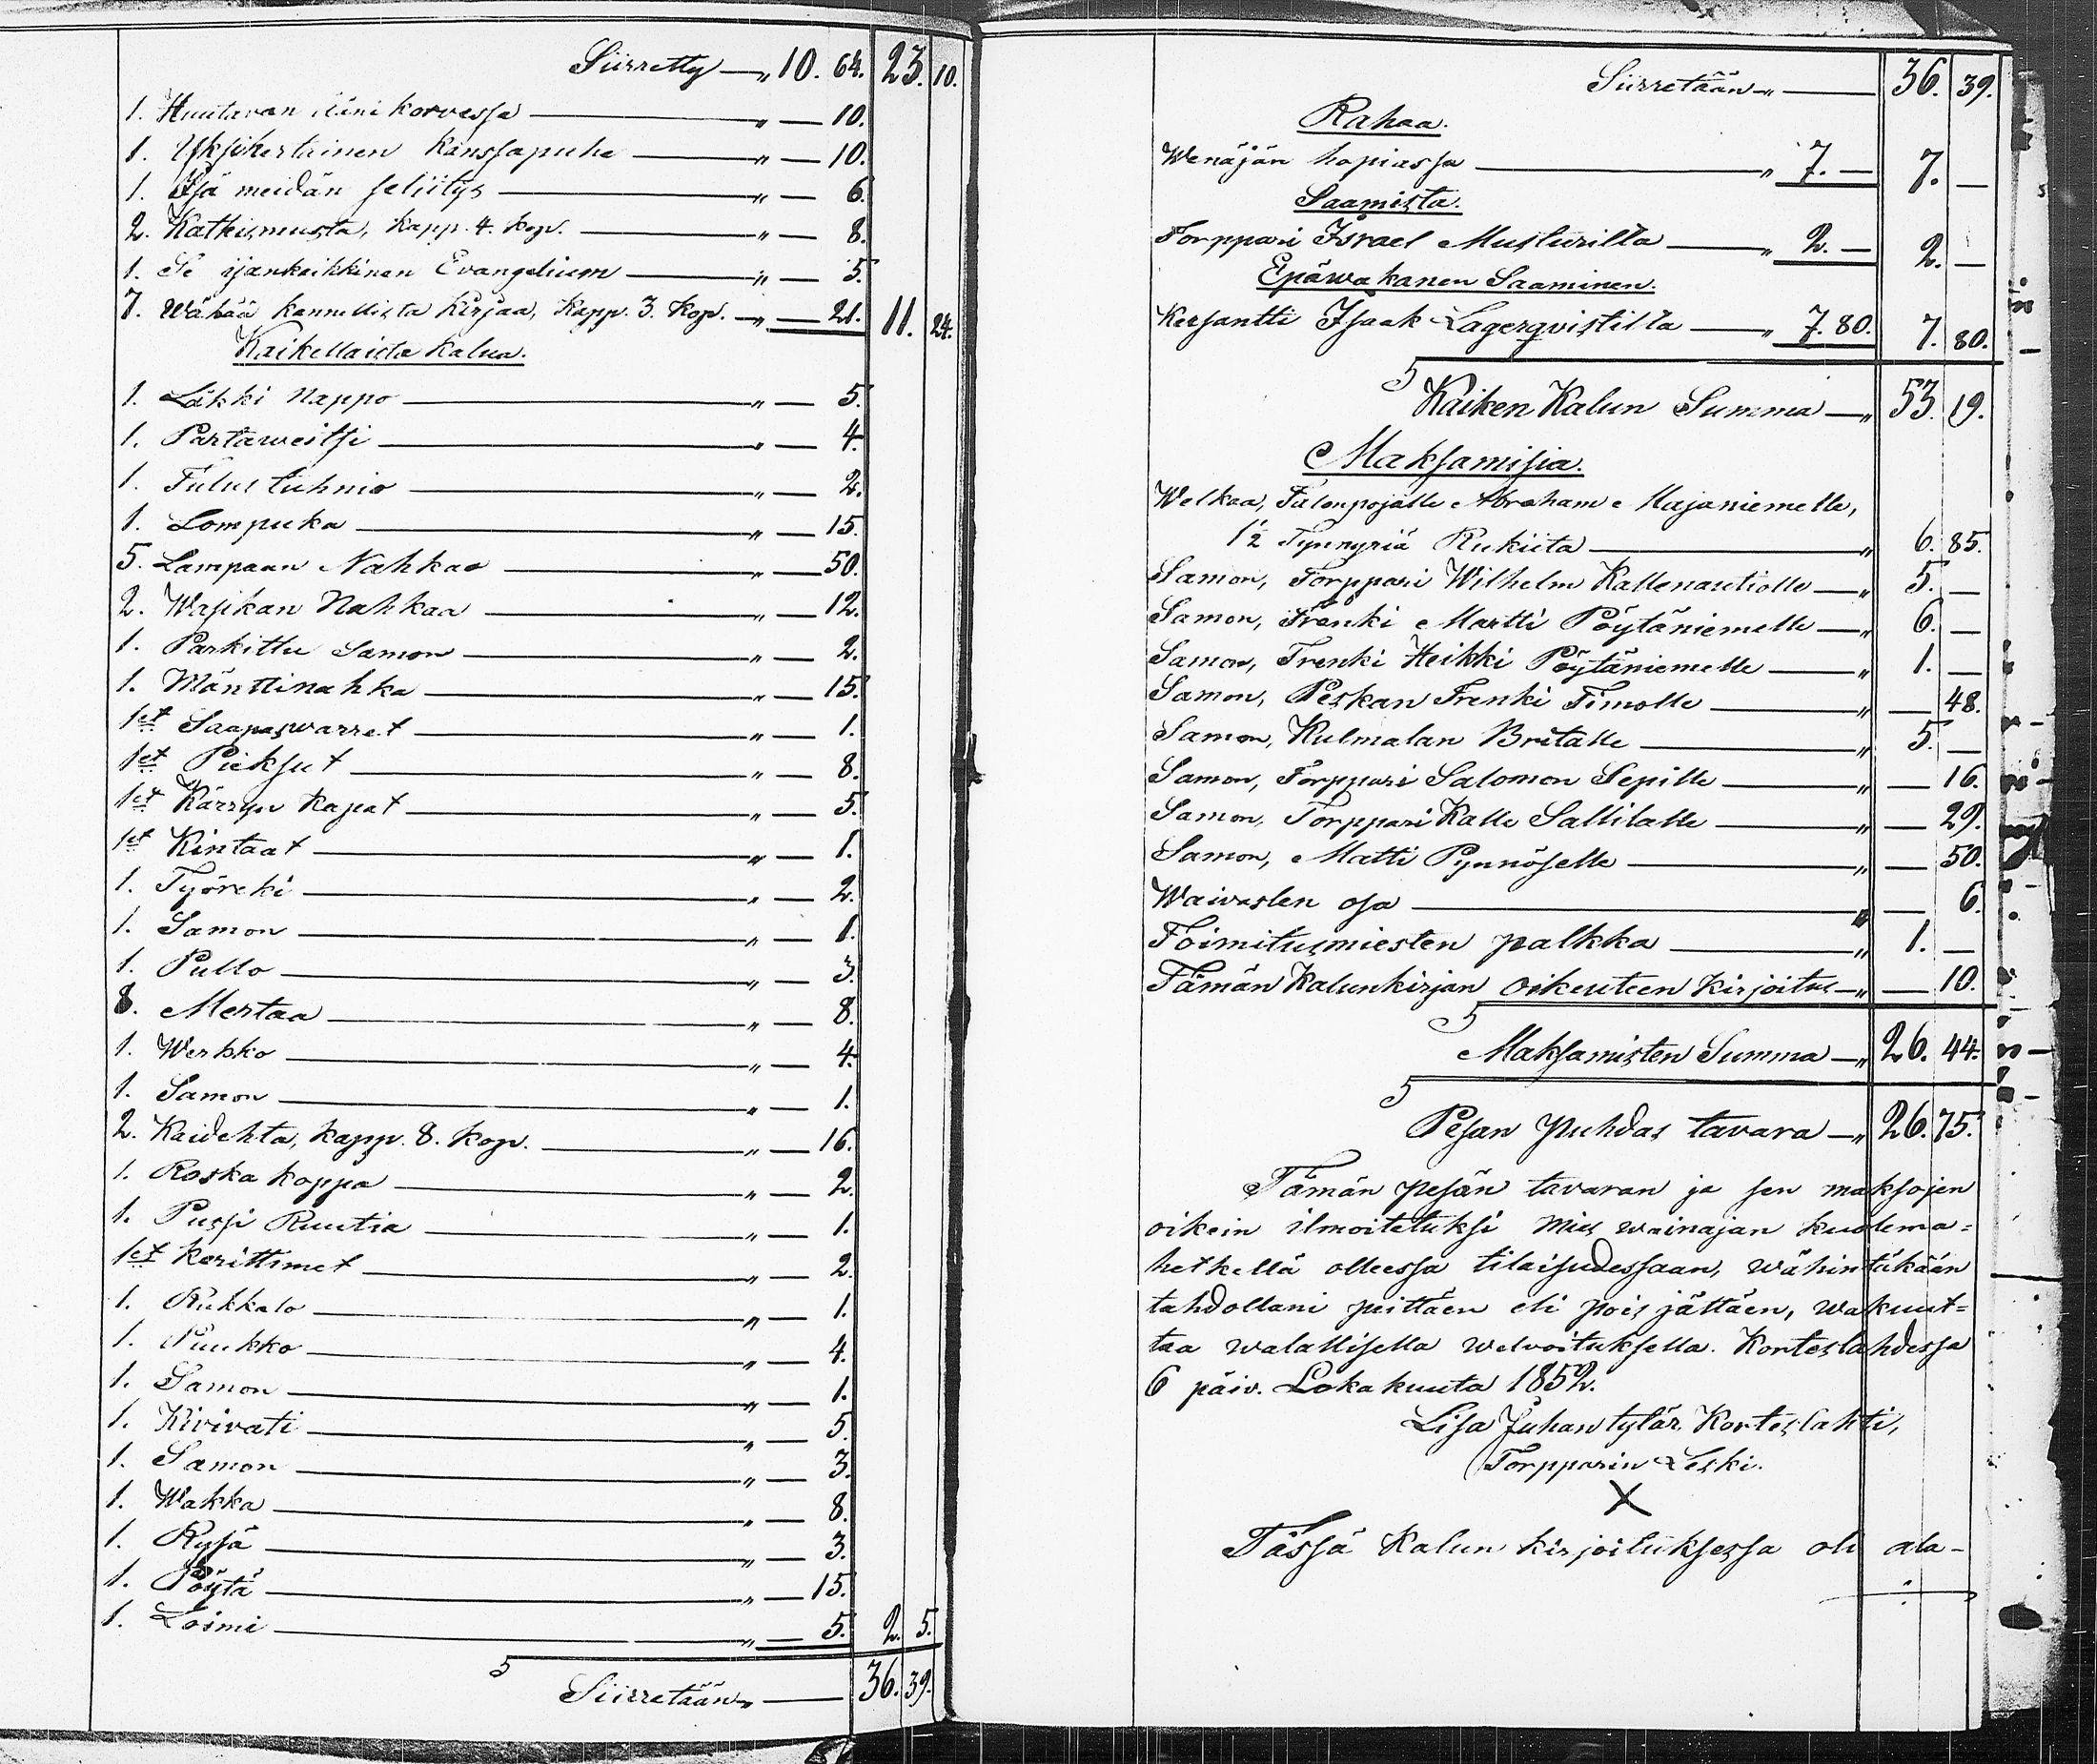 Siirretty —„ 10. 64. 23. 10.
1. Huutavan ääni korvessa —„— 10.
1. Yksikertainen kanssapuhe —„— 10.
1. Isä meidän selitys —„— 6.
2. Katkismusta, kapp. 4. kop. —„— 8.
1. Se ijankaikkinen Evangelium —„— 5.
7. Wähää kannellista kirjaa, kapp. 3. kop. —„— 21. 11. 24.
Kaikellaista kalua.
1. Läkki Nappo —„— 5.
1. Partaweitsi —„— 4.
1. Tulus tuhnio —„— 2.
1. Lompuka —„— 15.
5. Lampaan Nahkaa —„— 50.
2. Wasikan Nahkaa —„— 12.
1. Parkittu Samon —„— 2.
1. Mänttinahka —„— 15.
1et Saapaswarret —„— 1.
1et Pieksut —„— 8.
1et Kärryn Kapat —„— 5.
1et Kintaat —„— 1.
1. Työreki —„— 2.
1. Samon —„— 1.
1. Pullo —„— 3.
8. Mertaa —„— 8.
1. Werkko —„— 4.
1. Samon —„— 1.
2. Kaidehta, kapp. 8. kop. —„— 16.
1. Roska koppa —„— 2.
1. Pussi Ruutia —„— 1.
1et Kerittimet —„— 2.
1. Rukkalo —„— 1.
1. Puukko —„— 4.
1. Samon —„— 1.
1. Kivivati —„— 5.
1. Samon —„— 3.
1. Wakka —„— 8.
1. Rysä —„— 3.
1. Pöytä —„— 15.
1. Loimi —„— 5. 2. 5.
Siirretään „— 36. 39.
Siirretään „— 36. 39.
Rahaa.
Wenäjän hopiassa —„ 7. — 7. —
Saamista.
Torppari Israel Musturilta —„ 2. — 2. —
Epäwakanen Saaminen.
Kersantti Isaak Lagerqvistilta —„ 7. 80. 7. 80.
Kaiken Kalun Summa —„ 53. 19.
Maksamisia.
Welkaa, Talonpojalle Abraham Majaniemelle,
1 1/2 Tynnyriä Rukiita —„ 6. 85.
Samon, Torppari Wilhelm Kallenautiolle —„ 5. —
Samon, Trenki Martti Pöytäniemelle —„ 6. —
Samon, Trenki Heikki Pöytäniemelle —„ 1. —
Samon, Peskan Trenki Timolle —„ — 48.
Samon, Kulmalan Britalle —„ 5. —
Samon, Torppari Salomon Sepille —„ — 16.
Samon, Torppari Kalle Sallilalle —„ — 29.
Samon, Matti Pynnöselle —„ — 50.
Waivasten osa —„ — 6.
Toimitusmiesten palkka —„ 1. —
Tämän Kalunkirjan oikeuteen kirjoitus —„ — 10.
Maksamisten Summa —„ 26. 44.
Pesan puhdas tavara —„ 26. 75.
Tämän pesän tavaran ja sen maksojen
oikein ilmoitetuksi mies wainajan kuolema=
hetkellä olleessa tilaisudessaan, wähintäkään
tahdollani peittäen eli pois jättäen, wakuut=
taa walallisella welvoituksella. Korteslahdessa
6 päiv. Lokakuuta 1852.
Lisa Juhantytär Korteslahti,
Torpparin Leski.
X
Tässä Kalun kirjoituksessa oli ala-